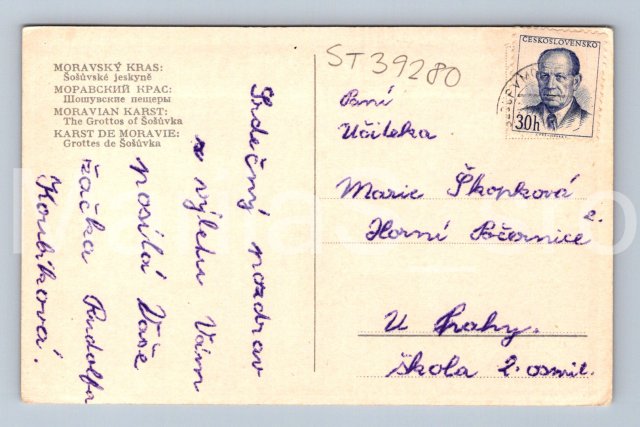 MORAVSKÝ KRAS:
Šošůvské jeskyně
МОРАВСКИЙ КРАС:
Шошувские пещеры
MORAVIAN KARST:
The Grottos of Šošůvka
KARST DE MORAVIE:
Grottes de Šošůvka
Srdečný pozdrav
z výletu Vám
posílá Vaše
žačka Rudolfa
Koubíková.
ST 39280
ČESKOSLOVENSKO
30h
Paní
Učitelka
Marie Škopková
Horní Počernice
U Prahy.
škola 2. osmil.